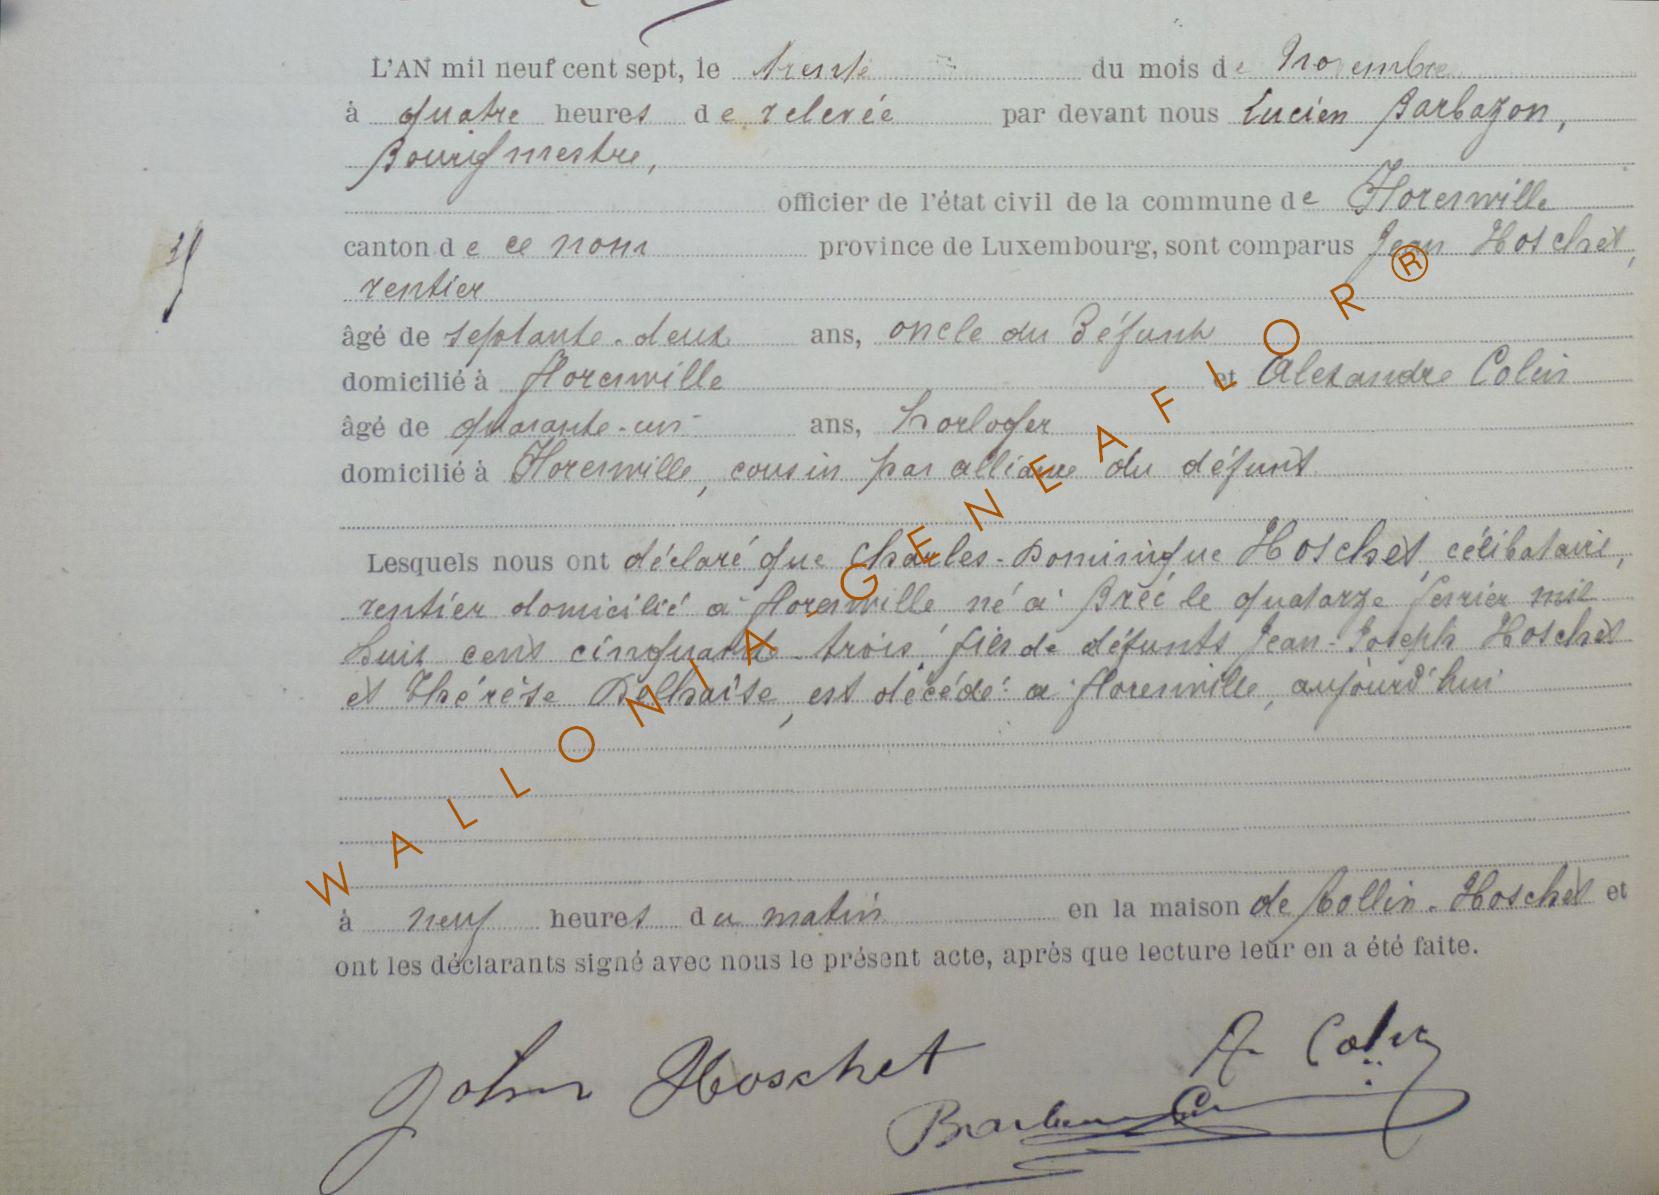 L'AN mil neuf cent sept, le trente du mois de Novembre
à quatre heures de relevée par devant nous Lucien Barbazon,
Bourgmestre,
officier de l'état civil de la commune de Florenville
canton de ce nom province de Luxembourg, sont comparus Jean Hoschet,
rentier
âgé de septante-deux ans, oncle du Défunt
domicilié à Florenville et Alexandre Colin
âgé de quarante-un ans, horloger
domicilié à Florenville, cousin par alliance du défunt
Lesquels nous ont déclaré que Charles-Dominique Hoschet, célibataire,
rentier domicilié à Florenville, né à le quatorze février mil
huit cent cinquante-trois, fils de défunts Jean-Joseph Hoschet
et Thérèse Delhaise, est décédé à Florenville, aujourd'hui
à neuf heures du matin en la maison de Collin-Hoschet et
ont les déclarants signé avec nous le présent acte, après que lecture leur en a été faite.
John Hoschet A. Colin
WALLONIA-GENEAFLOR®